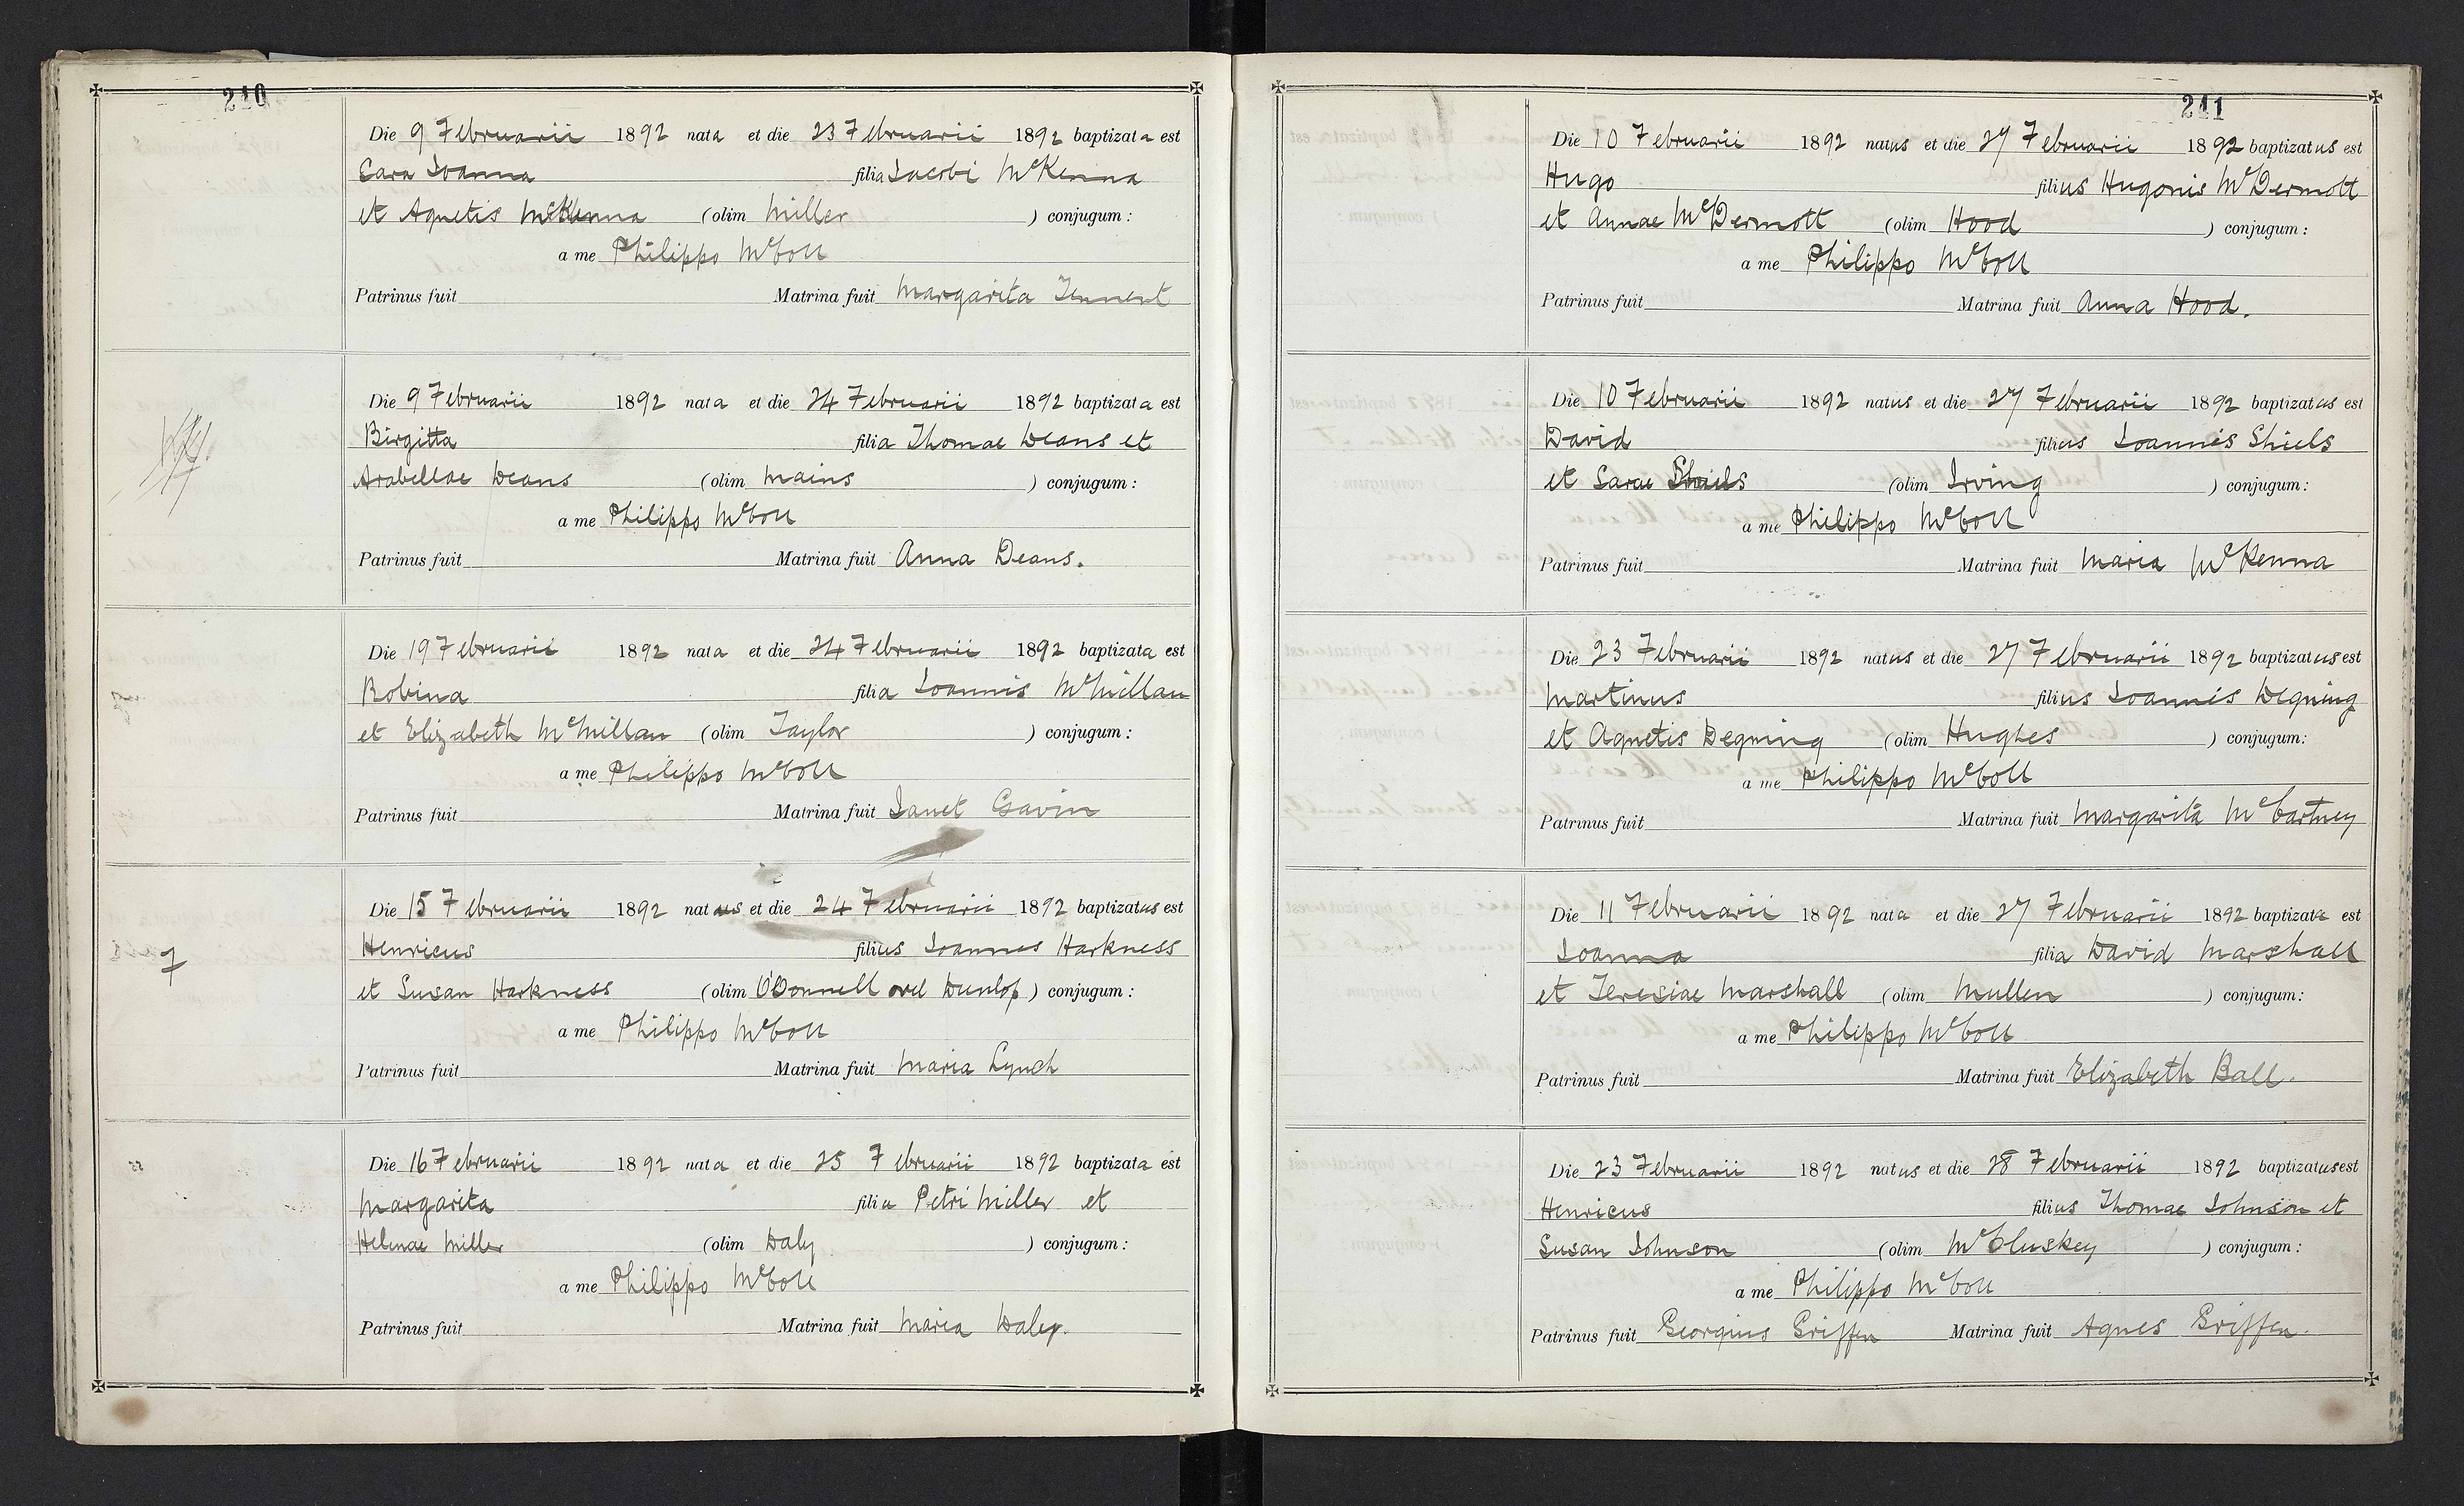 240
Die 9 Februarii 1892 nata et die 23 Februarii 1892 baptizata est
Sara Joanna filia Jacobi McKenna
et Agnetis McKenna (olim Miller ) conjugum :
a me Philippo McColl
Patrinus fuit Matrina fuit Margarita Tennent
Die 9 Februarii 1892 nata et die 24 Februarii 1892 baptizata est
Birgitta filia Thomae Deans et
Arabellae Deans (olim Mains ) conjugum :
a me Philippo McColl
Patrinus fuit Matrina fuit Anna Deans.
Die 19 Februarii 1892 nata et die 24 Februarii 1892 baptizata est
Robina filia Joannis McMillan
et Elizabeth McMillan (olim Taylor ) conjugum :
a me Philippo McColl
Patrinus fuit Matrina fuit Janet Gavin
Die 15 Februarii 1892 natus et die 24 Februarii 1892 baptizatus est
7
Henricus filius Joannes Harkness
et Susan Harkness (olim O'Donnell vel Dunlop ) conjugum :
a me Philippo McColl
Patrinus fuit Matrina fuit Maria Lynch
Die 16 Februarii 1892 nata et die 25 Februarii 1892 baptizata est
Margarita filia Petri Miller et
Helenae Miller (olim Daly ) conjugum :
a me Philippo McColl
Patrinus fuit Matrina fuit Maria Daley.
241
Die 10 Februarii 1892 natus et die 27 Februarii 1892 baptizatus est
Hugo filius Hugonis McDermott
et Annae McDermott (olim Hood ) conjugum :
a me Philippo McColl
Patrinus fuit Matrina fuit Anna Hood.
Die 10 Februarii 1892 natus et die 27 Februarii 1892 baptizatus est
David filius Joannis Shiels
et Sarae Shiels (olim Irving ) conjugum :
a me Philippo McColl
Patrinus fuit Matrina fuit Maria McKenna
Die 23 Februarii 1892 natus et die 27 Februarii 1892 baptizatus est
Martinus filius Joannis Degning
et Agnetis Degning (olim Hughes ) conjugum:
a me Philippo McColl
Patrinus fuit Matrina fuit Margarita McCartney
Die 11 Februarii 1892 nata et die 27 Februarii 1892 baptizata est
Joanna filia David Marshall
et Teresiae Marshall (olim Mullen ) conjugum:
a me Philippo McColl
Patrinus fuit Matrina fuit Elizabeth Ball.
Die 23 Februarii 1892 natus et die 28 Februarii 1892 baptizatus est
Henricus filius Thomae Johnson et
Susan Johnson (olim McCluskey ) conjugum :
a me Philippo McColl
Patrinus fuit Georgius Griffen Matrina fuit Agnes Griffen.